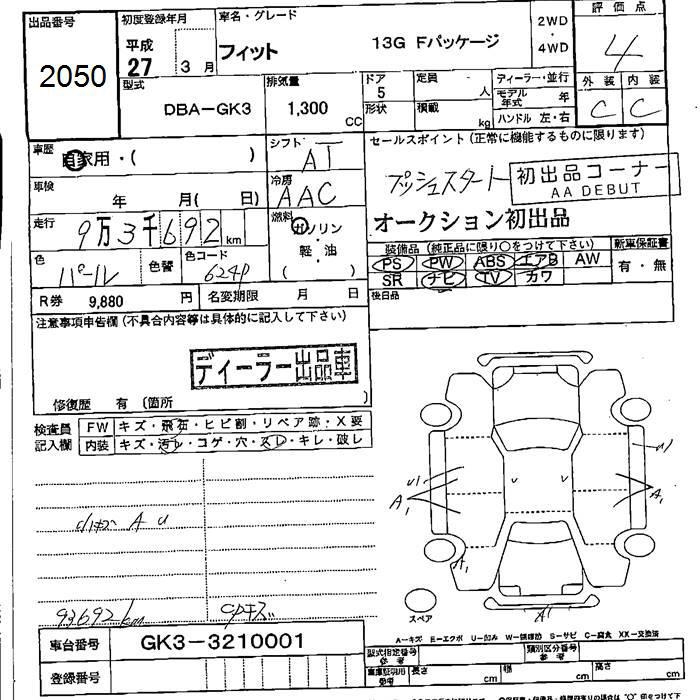 出品番号
2050
初度登録年月
平成
27
3 月
車名・グレード
フィット 13G Fパッケージ
2WD
・
4WD
評価点
4
型式
DBA-GK3
排気量
1,300
CC
ドア
5
形状
定員
人
積載
kg
ディーラー・並行
モデル
年式
年
ハンドル 左・右
外装 内装
C C
車歴
自家用・( )
シフト
AT
車検
年 月( 日)
冷房
AAC
走行
9万3千692 km
燃料
ガソリン
・
軽・油
( )
色
パール
色替
色コード
624P
R券 9,880 円
名変期限 月 日
セールスポイント (正常に機能するものに限ります)
プッシュスタート
初出品コーナー
AA DEBUT
オークション初出品
装備品 (純正品に限り○をつけて下さい)
新車保証書
PS PW ABS エアB AW
有・無
SR ナビ TV カワ
後日品
注意事項申告欄 (不具合内容等は具体的に記入して下さい)
ディーラー出品車
修復歴 有 (箇所 )
検査員
記入欄
FW キズ・飛石・ヒビ割・リペア跡・X要
内装 キズ・汚レ・コゲ・穴・スレ・キレ・破レ
A U
93692km
車台番号
GK3-3210001
登録番号
U1
A1
U
U
U1
A1
A1
A1
スペア
A-キズ E-エクボ U-凹み W-補修跡 S-サビ C-腐食 XX-交換済
型式指定番号
参考
類別区分番号
参考
車庫証明用
参考
長さ
cm
幅
cm
高さ
cm